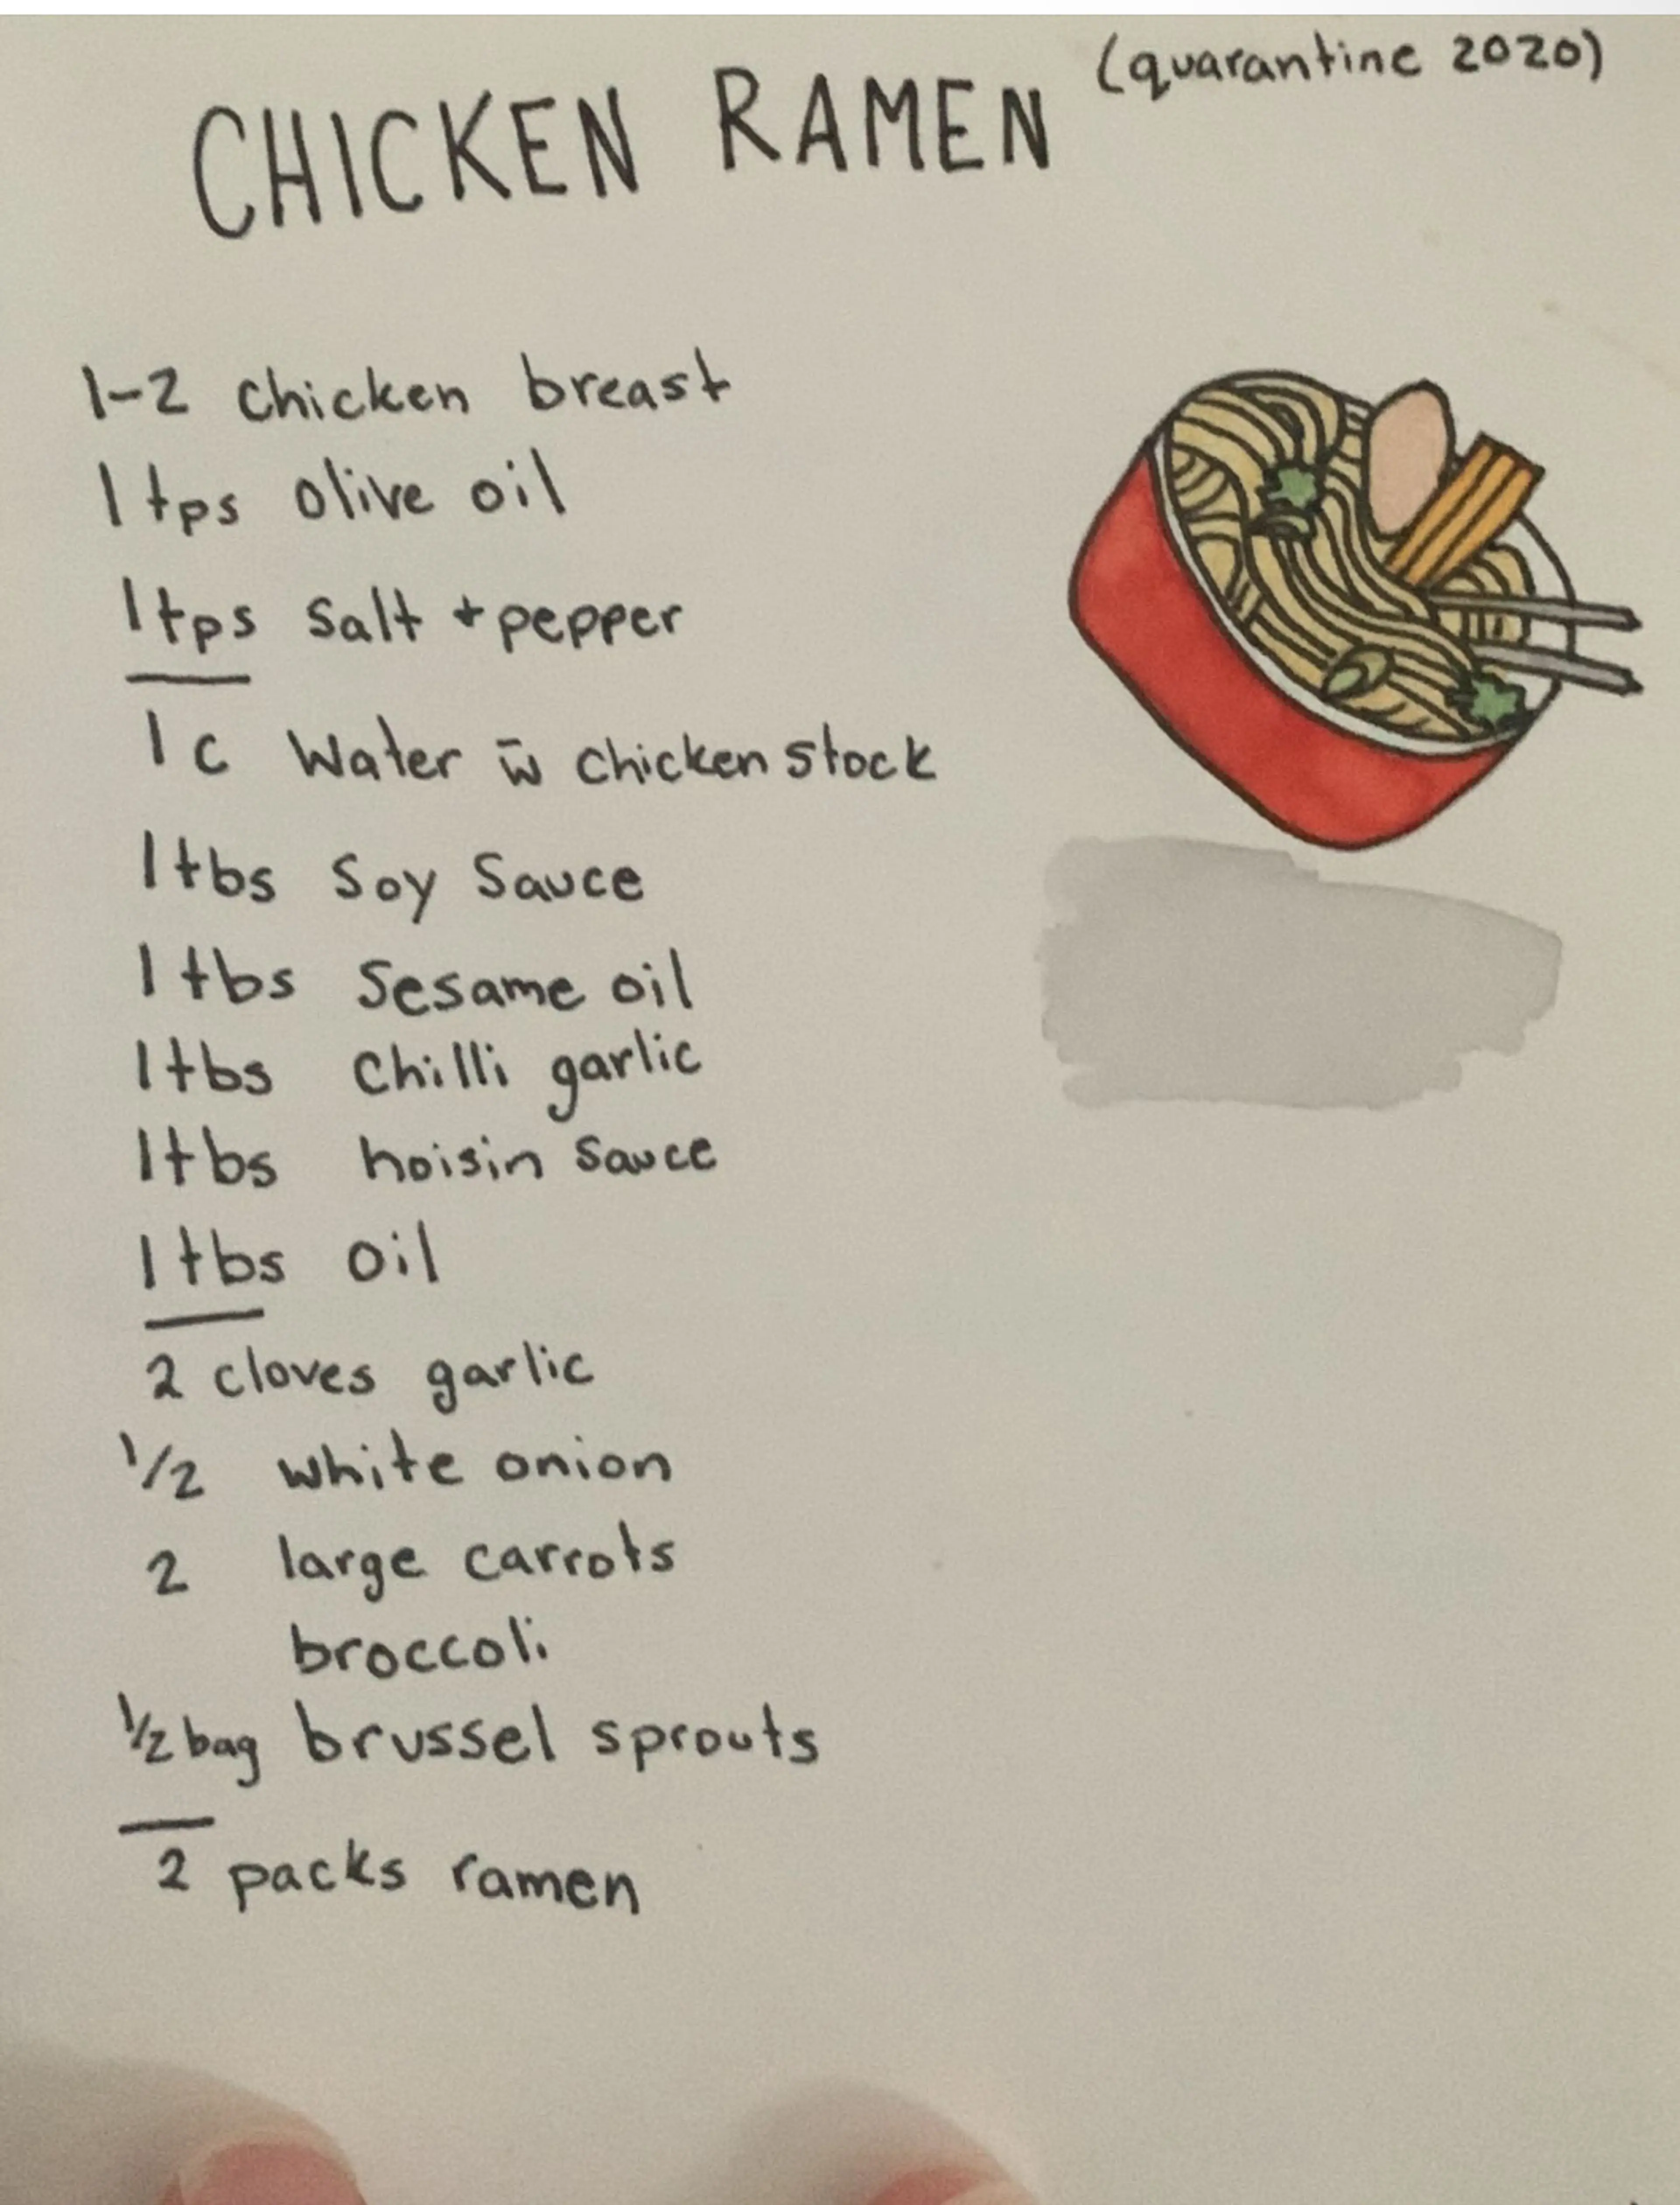 (quarantine 2020)
CHICKEN RAMEN
1-2 chicken breast
1 tps olive oil
1 tps salt + pepper
1 c Water w̄ chicken stock
1 tbs Soy Sauce
1 tbs Sesame oil
1 tbs Chilli garlic
1 tbs hoisin sauce
1 tbs oil
2 cloves garlic
1/2 white onion
2 large carrots
broccoli
1/2 bag brussel sprouts
2 packs ramen